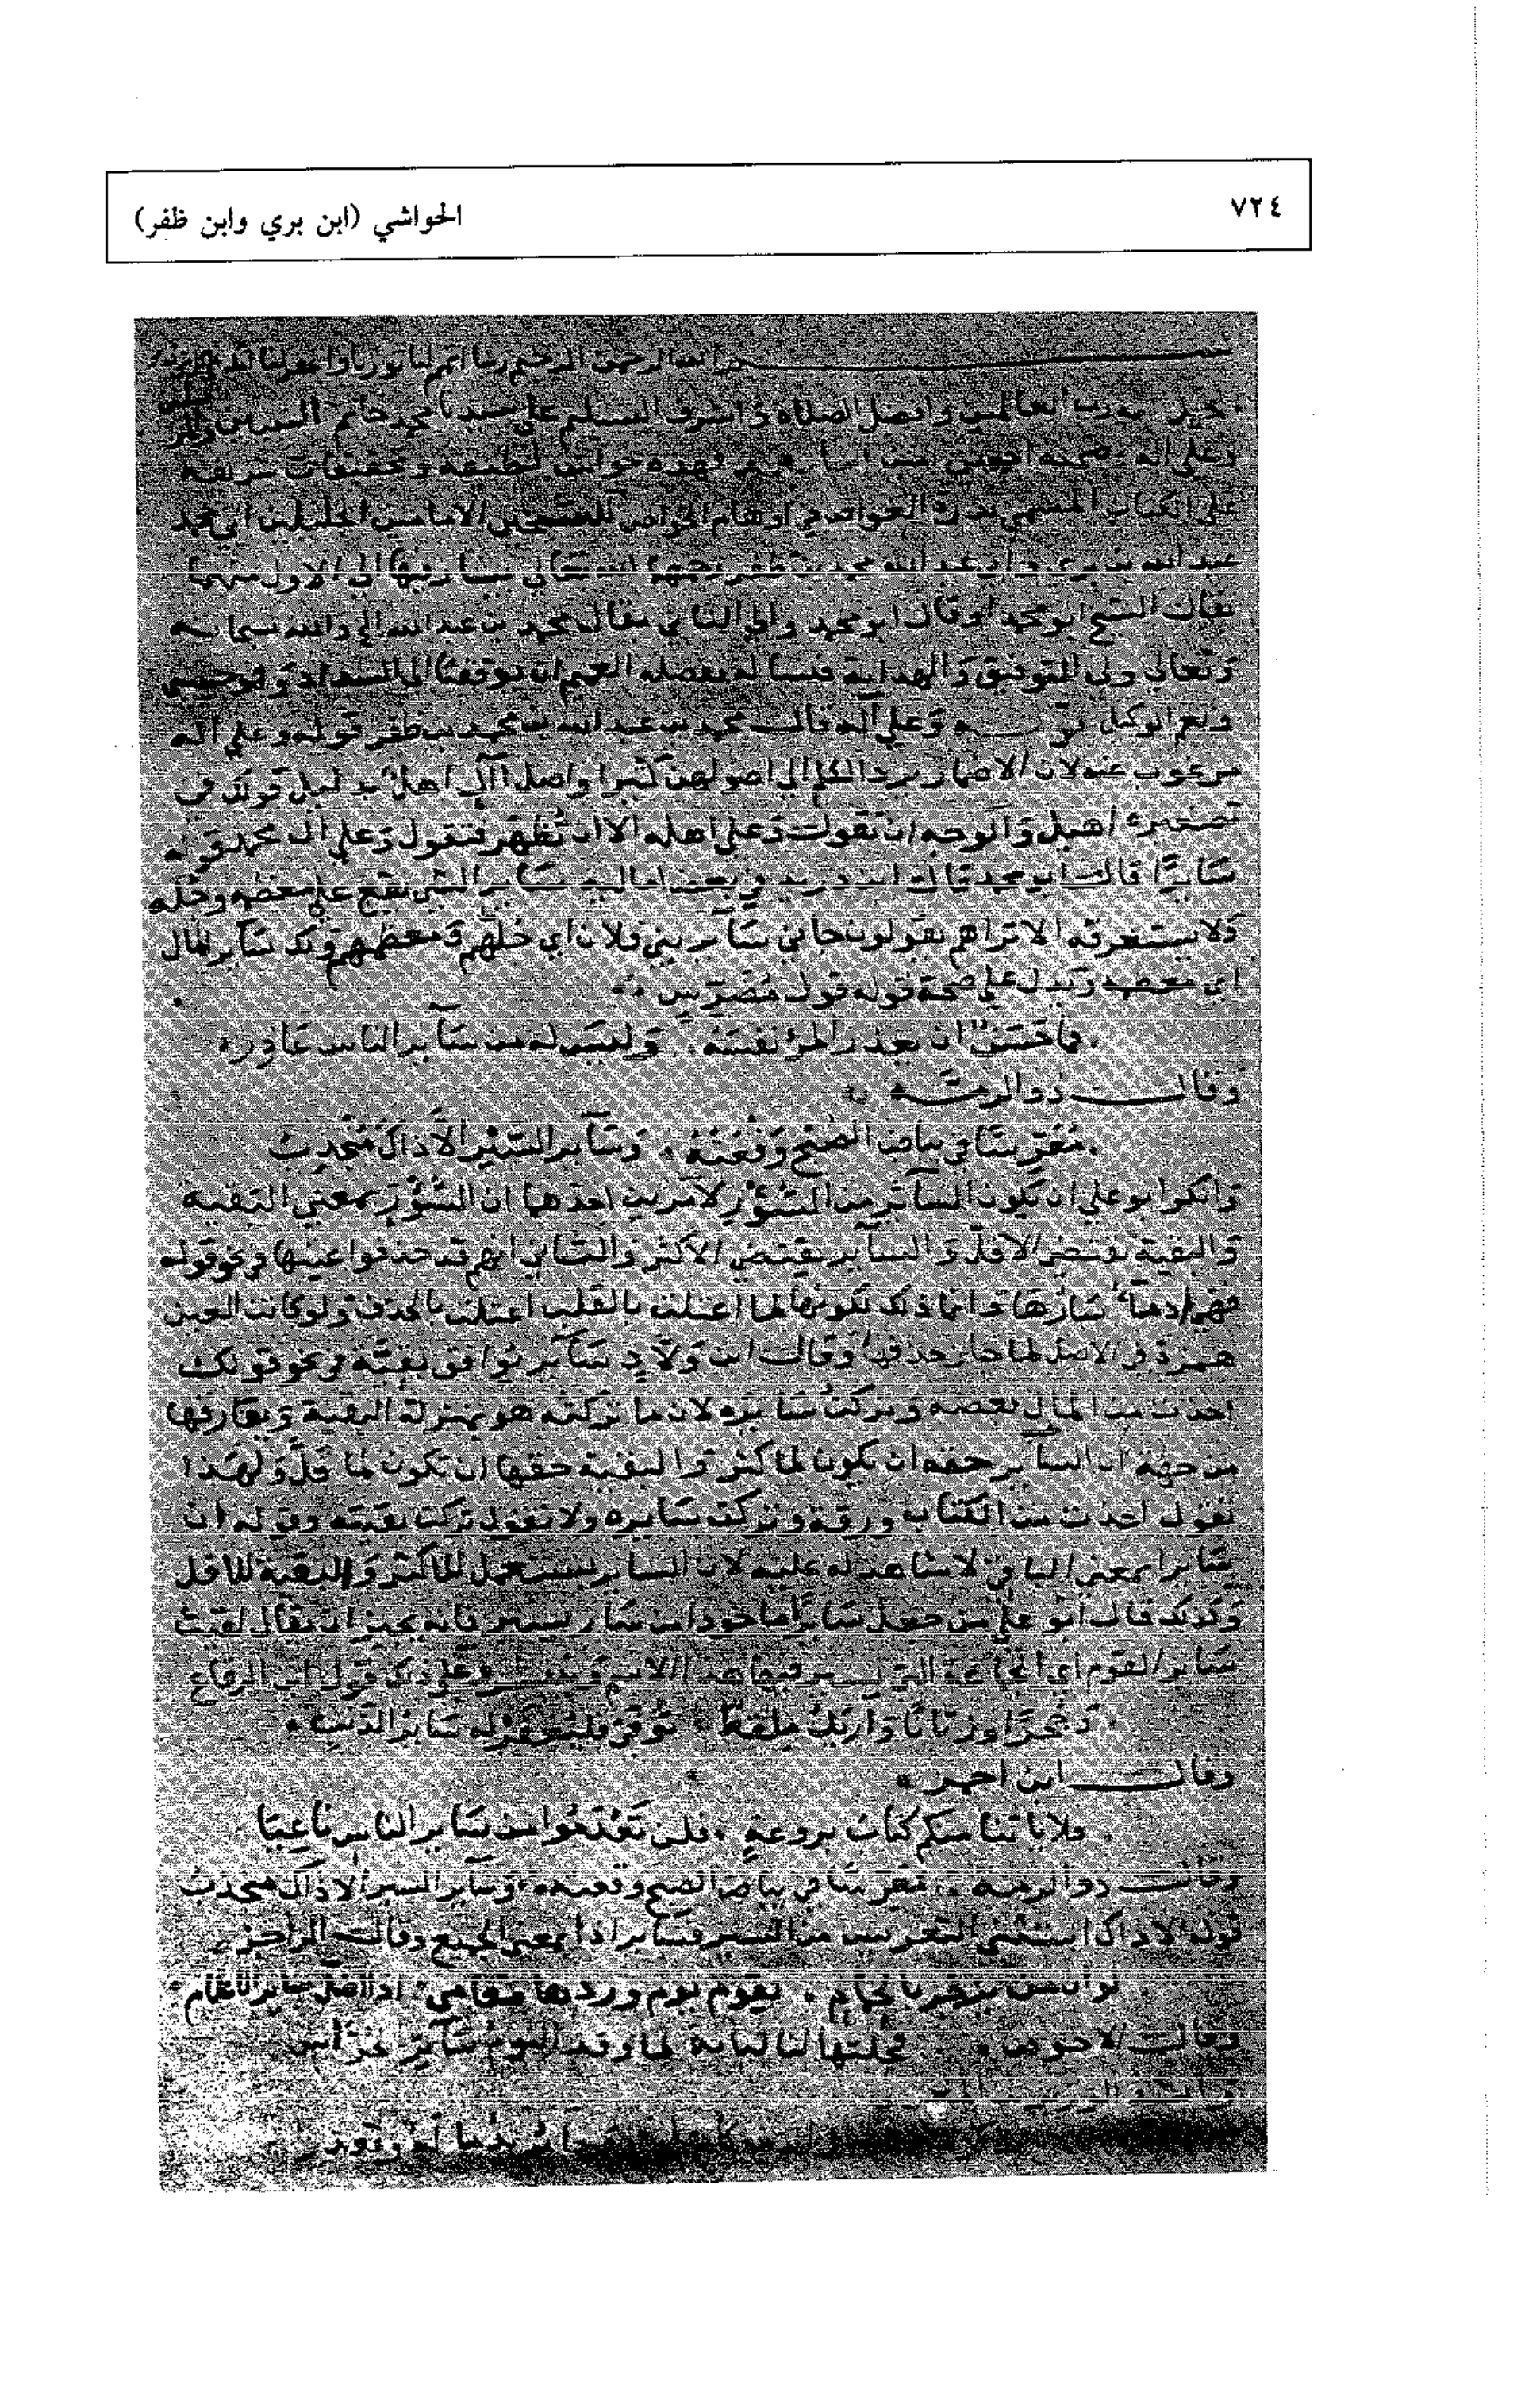 ٧٢٤
الحواشي (ابن بري وابن ظفر)
الله الرحمن الرحيم ربنا اتمم لنا نورنا واغفر لنا
رب العالمين وافضل الصلاه واشرف التسليم على سيدنا محمد خاتم النبيين
وعلى اله وصحبه اجمعين فهذه حواش لطيفة وتحقيقات شريفة
على الكتاب المسمى بدرة الغواص في اوهام الخواص للشيخين الامامين الجليلين ابي محمد
عبد الله بن بري وابي عبد الله محمد بن ظفر رحمهما الله تعالى مشارفيها الى الاول منهما
بقال الشيخ ابو محمد او قال ابو محمد والى الثاني بقال محمد بن عبد الله والله سبحانه
وتعالى ولى التوفيق والهداية فنساله بفضله العميم ان يوفقنا الى السداد وهو حسبي
ونعم الوكيل وعلى آله قال محمد بن عبد الله بن محمد بن ظفر قوله وعلى اله
مرغوب عنه لان الاضمار يرد الكلم الى اصولهن كثيرا واصل آل اهل بدليل قولك في
تصغيره اهيل والوجه ان تقول وعلى اهله الا ان تظهر فتقول وعلى آل محمد قوله
سايرا قال ابو محمد قال ابن دريد في بعض اماليه ساير الشي يقع على معظمه وجله
ولا يستغرقه الا تراهم يقولون جاني ساير بني فلان اي جلهم ومعظمهم ولك ساير المال
اي معظمه ويدل على صحة قوله قول مضرس
فما حسن ان يعذر المرء نفسه وليس له من ساير الناس عاذر
وقال ذو الرمة
معرسا في بياض الصبح وقعته وساير السير الا ذاك منجذب
وانكر ابو علي ان يكون الساير من السؤر لامرين احدهما ان السؤر بمعنى البقية
والبقية تقتضي الاقل والساير يقتضي الاكثر والثاني انهم قد حذفوا عينها في نحو قوله
فهي ادماء سارها قد انما ذلك لكونها لما اعتلت بالقلب اعتلت بالحذف ولو كانت العين
همزة في الاصل لما جاز حذفها وقال ابن ولاد ساير توافق بقية في نحو قولك
اخذت من المال بعضه وتركت سايره لان ما تركته هو بمنزلة البقية ويفارقها
من جهة ان الساير حقه ان يكون لما كثر والبقية حقها ان تكون لما قل ولهذا
تقول اخذت من الكتاب ورقة وتركت سايره ولا تقول تركت بقيته وقوله ان
سايرا بمعنى الباقي لا شاهد له عليه لان الساير يستعمل للاكثر والبقية للاقل
وكذلك قال ابو علي من جعل سايرا ماخوذا من سار يسير فانه يجيز ان يقال لقيت
ساير القوم اي الجماعة التي يسير فيها هذا الاسم وعلى ذلك قول ابن الرقاع
وحجرا وزبانا وان يك ملقط توفى فليغفر له ساير الذنب
وقال ابن احمر
فلا ياتنا منكم كتاب بروعة فلن تعدموا من ساير الناس ناعيا
وقال ذو الرمة معرسا في بياض الصبح وقعته وساير السير الا ذاك منجذب
قوله الا ذاك استثنى التعريس من السير فساير اذا بمعنى الجميع وقال الراجز
لو ان من يزجر بالحمام يقوم يوم وردها مقامي اذا اضل ساير الاحلام
وقال الاحوص فجلتها لنا لبابة لما وقذ النوم ساير الحراس